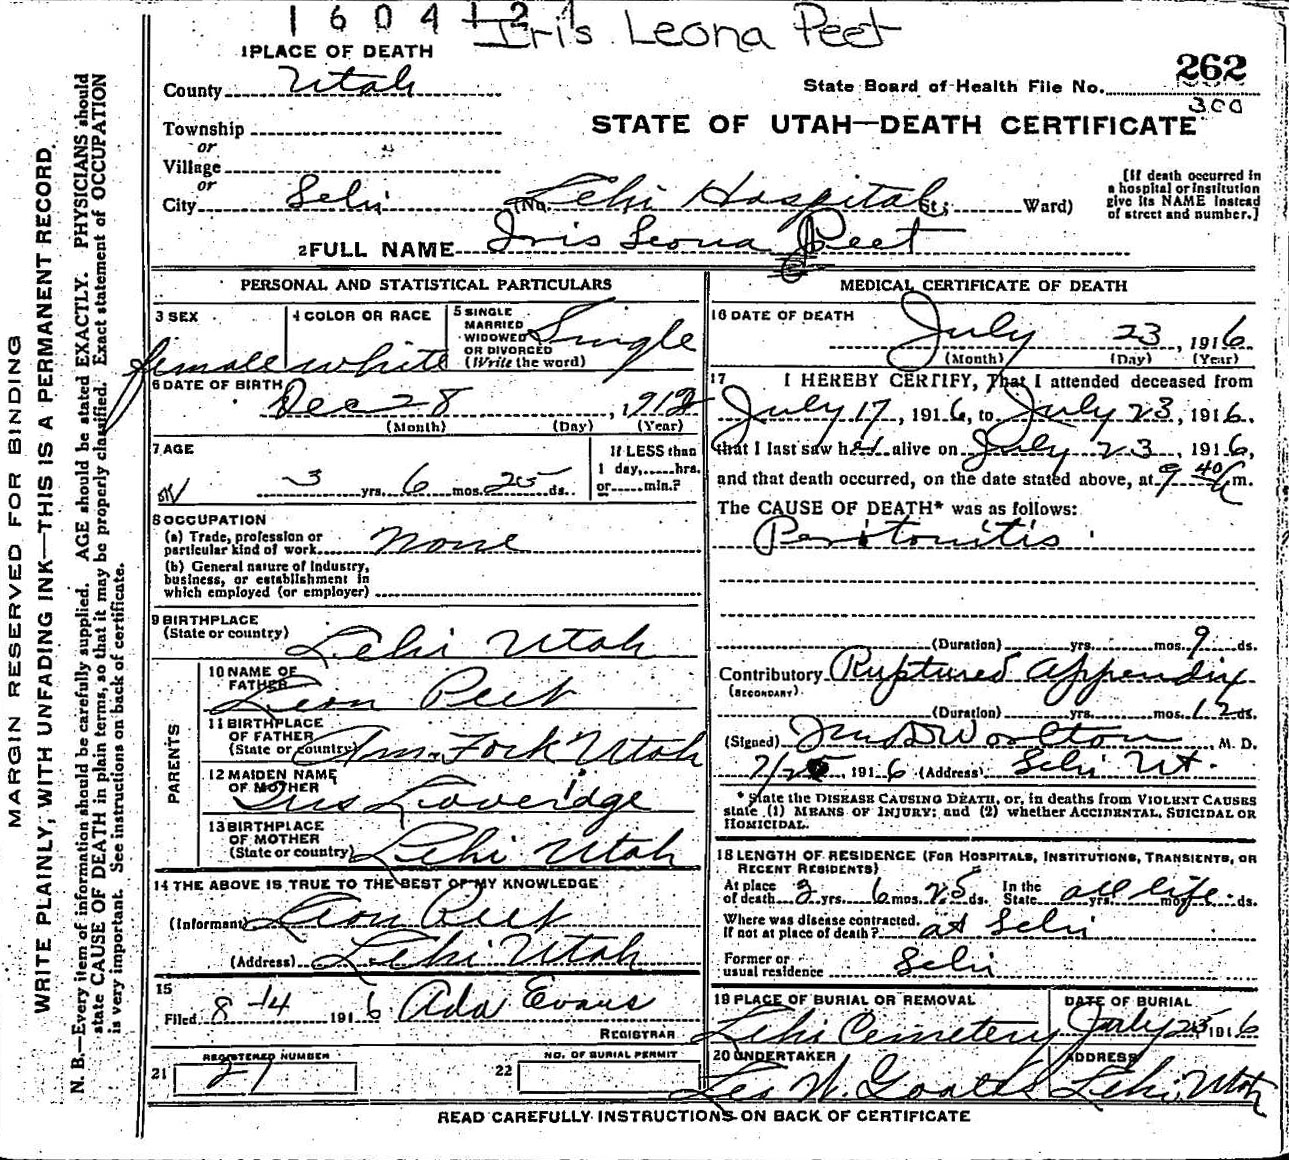 1604121
Iris Leona Peet
1 PLACE OF DEATH
County Utah
State Board of Health File No. 262
300
Township
or
STATE OF UTAH—DEATH CERTIFICATE
Village
or
City Lehi (No. Lehi Hospital St; Ward)
[If death occurred in
a hospital or institution
give its NAME instead
of street and number.]
2 FULL NAME Iris Leona Peet
PERSONAL AND STATISTICAL PARTICULARS
3 SEX
female
4 COLOR OR RACE
white
5 SINGLE
MARRIED
WIDOWED
OR DIVORCED
(Write the word)
Single
6 DATE OF BIRTH Dec 28, 1912
(Month) (Day) (Year)
7 AGE
3 yrs. 6 mos. 25 ds.
If LESS than
1 day, hrs.
or min.?
8 OCCUPATION
(a) Trade, profession or
particular kind of work None
(b) General nature of Industry,
business, or establishment in
which employed (or employer)
9 BIRTHPLACE
(State or country) Lehi Utah
PARENTS
10 NAME OF
FATHER Leon Peet
11 BIRTHPLACE
OF FATHER
(State or country) Am. Fork Utah
12 MAIDEN NAME
OF MOTHER Loveridge
13 BIRTHPLACE
OF MOTHER
(State or country) Lehi Utah
14 THE ABOVE IS TRUE TO THE BEST OF MY KNOWLEDGE
(Informant) Leon Peet
(Address) Lehi Utah
15
Filed 8-14 1916 Ada Evans
REGISTRAR
REGISTERED NUMBER
21 27
NO. OF BURIAL PERMIT
22
MEDICAL CERTIFICATE OF DEATH
16 DATE OF DEATH
July 23, 1916
(Month) (Day) (Year)
17 I HEREBY CERTIFY, That I attended deceased from
July 17, 1916, to July 23, 1916.
that I last saw her alive on July 23, 1916,
and that death occurred, on the date stated above, at 9 40 A m.
The CAUSE OF DEATH* was as follows:
Peritonitis
(Duration) yrs. mos. 9 ds.
Contributory Ruptured Appendix
(SECONDARY)
(Duration) yrs. mos. 12 ds.
(Signed) Woolton, M. D.
7/25, 1916 (Address) Lehi Ut.
* State the DISEASE CAUSING DEATH, or, in deaths from VIOLENT CAUSES
state (1) MEANS OF INJURY; and (2) whether ACCIDENTAL, SUICIDAL OR
HOMICIDAL.
18 LENGTH OF RESIDENCE (FOR HOSPITALS, INSTITUTIONS, TRANSIENTS, OR
RECENT RESIDENTS)
At place
of death 3 yrs. 6 mos. 25 ds. In the
State all life yrs. mos. ds.
Where was disease contracted,
If not at place of death? at Lehi
Former or
usual residence Lehi
19 PLACE OF BURIAL OR REMOVAL
Lehi Cemetery
DATE OF BURIAL
July 25 1916
20 UNDERTAKER
W. Goates
ADDRESS
Lehi, Utah
READ CAREFULLY INSTRUCTIONS ON BACK OF CERTIFICATE
MARGIN RESERVED FOR BINDING
WRITE PLAINLY, WITH UNFADING INK—THIS IS A PERMANENT RECORD.
N. B.—Every item of information should be carefully supplied. AGE should be stated EXACTLY. PHYSICIANS should
state CAUSE OF DEATH in plain terms, so that it may be properly classified. Exact statement of OCCUPATION
is very important. See instructions on back of certificate.